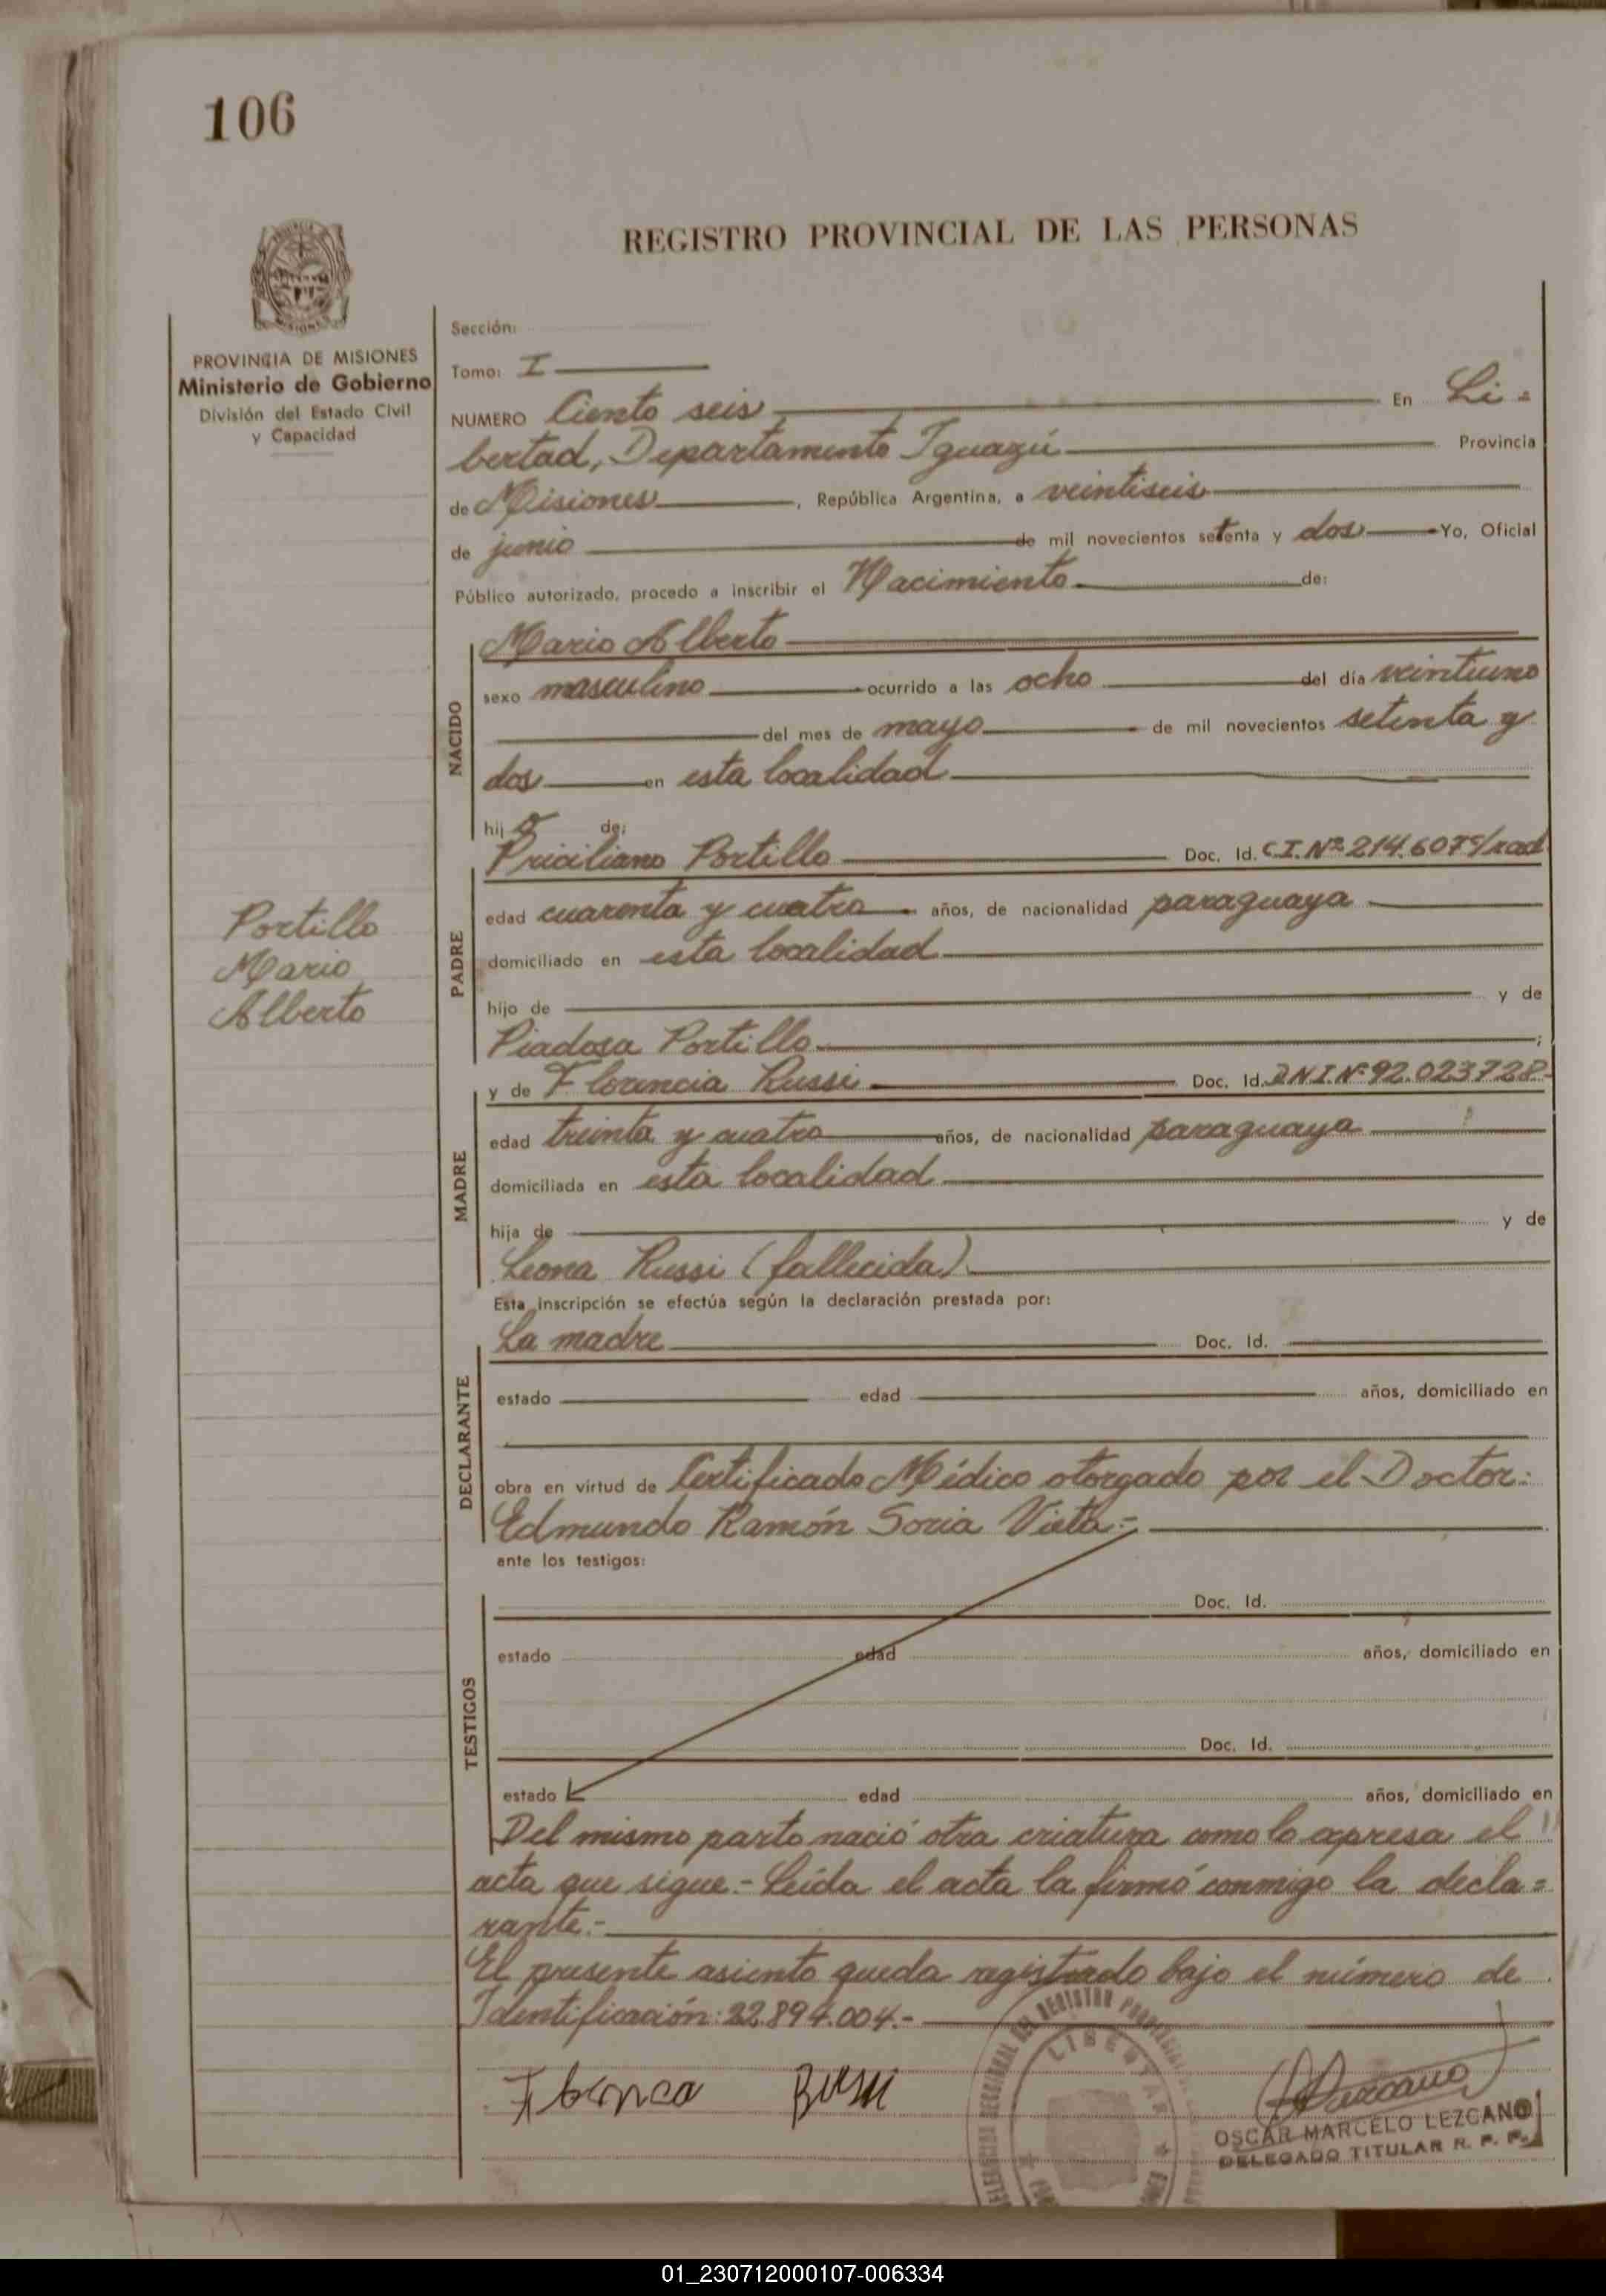 106
REGISTRO PROVINCIAL DE LAS PERSONAS
PROVINCIA DE MISIONES
Ministerio de Gobierno
División del Estado Civil
y Capacidad
Sección:
Tomo: I
NUMERO Ciento seis En Li=
bertad, Departamento Iguazú Provincia
de Misiones, República Argentina, a veintiseis
de junio de mil novecientos setenta y dos Yo, Oficial
Público autorizado, procedo a inscribir el Nacimiento de:
NACIDO
Mario Alberto
sexo masculino ocurrido a las ocho del día veintiuno
del mes de mayo de mil novecientos setenta y
dos en esta localidad
hijo de:
PADRE
Priciliano Portillo Doc. Id. C.I. Nº 214.607
edad cuarenta y cuatro años, de nacionalidad paraguaya
domiciliado en esta localidad
hijo de y de
Piadosa Portillo ;
Portillo
Mario
Alberto
MADRE
y de Florencia Russi Doc. Id. D.N.I. Nº 92.023.728-
edad treinta y cuatro años, de nacionalidad paraguaya
domiciliada en esta localidad
hija de y de
Leona Russi (fallecida)
Esta inscripción se efectúa según la declaración prestada por:
DECLARANTE
La madre Doc. Id.
estado edad años, domiciliado en
obra en virtud de Certificado Médico otorgado por el Doctor:
Edmundo Ramón Soria Vieta.-
ante los testigos:
TESTIGOS
Doc. Id.
estado edad años, domiciliado en
Doc. Id.
estado edad años, domiciliado en
Del mismo parto nació otra criatura como lo expresa el
acta que sigue.- Leída el acta la firmó conmigo la decla=
rante.-
El presente asiento queda registrado bajo el número de
Identificación: 22.894.004.-
LIBERTAD
OSCAR MARCELO LEZCANO
DELEGADO TITULAR R. P. P.
01_230712000107-006334